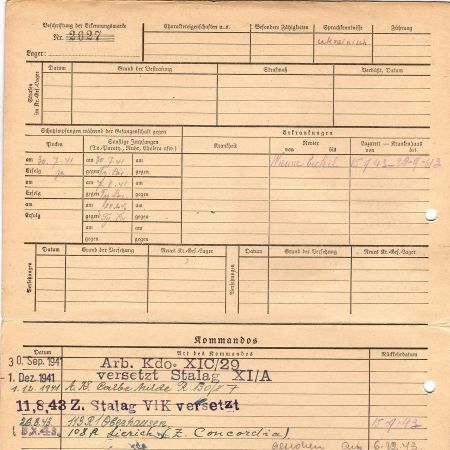 Beschriftung der Erkennungsmarke
Nr. 2627
Lager:
Charaktereigenschaften u.s.
Besondere Fähigkeiten
Sprachkenntnisse
Führung
ukrainisch
Strafen im Kr.-Gef.-Lager
Datum
Grund der Bestrafung
Strafmaß
Verbüßt, Datum
Schutzimpfungen während der Gefangenschaft gegen
Erkrankungen
Pocken
Sonstige Impfungen
(Ty.-Paraty., Ruhr, Cholera usw.)
Krankheit
Revier
von bis
Lazarett — Krankenhaus
von bis
am 30.7.41
am 30.7.41
am
Wanne-Eickel
15.9.43
28.9.43
Erfolg
gegen
gegen
am
am
am
Erfolg
gegen
gegen
am
am
am
Erfolg
gegen
gegen
am
am
gegen
gegen
Versetzungen
Datum
Grund der Versetzung
Neues Kr.-Gef.-Lager
Versetzungen
Datum
Grund der Versetzung
Neues Kr.-Gef.-Lager
Kommandos
Datum
Art des Kommandos
Rückkehrdatum
30. Sep. 1941
Arb. Kdo. XIC/29
-1. Dez. 1941
versetzt Stalag XI/A
1.12.1941
11.8.43 Z. Stalag VI K versetzt
113 R/Oberhausen
15.9.43
108 R Lierich (Z. Concordia)
6.12.43